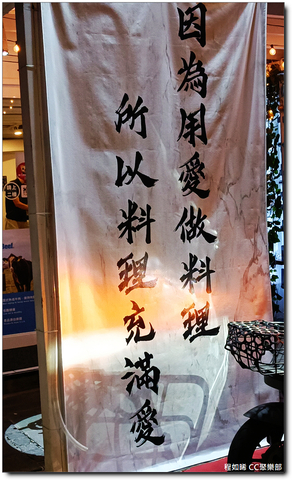 因為用愛做料理
所以料理充滿愛
程如晞 CC聚樂部